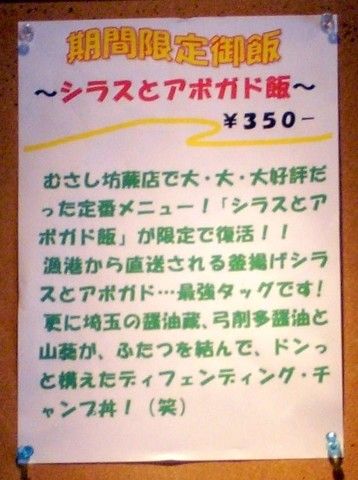 期間限定御飯
～シラスとアボガド飯～
￥350－
むさし坊蕨店で大・大・大好評だ
った定番メニュー！「シラスとア
ボガド飯」が限定で復活！！
漁港から直送される釜揚げシラ
スとアボガド…最強タッグです！
更に埼玉の醤油蔵、弓削多醤油と
山葵が、ふたつを結んで、ドンっ
と構えたディフェンディング・チ
ャンプ丼！（笑）